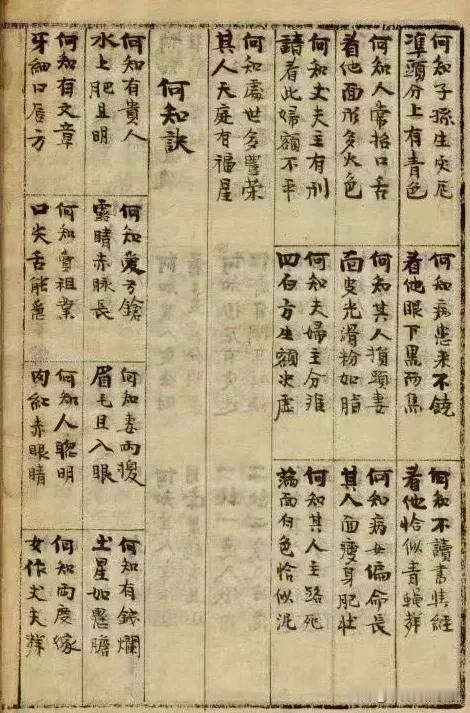 何知子孫生灾厄
準頭分上有青色
何知病患来不饒
看他眼下黑而焦
何知不讀書経
看他恰似青蠅群
何知人常招口舌
看他面形多火色
何知其人損頭妻
面皮光滑粉如脂
何知病女偏命長
其人面瘦身肥壮
何知丈夫主有刑
請看此婦額不平
何知夫婦主分离
四白方生額尖虚
何知其人主路死
滿面白色恰似泥
何知處世多豊荣
其人天庭有福星
何知訣
何知有貴人
水上肥且明
何知爱弓鎗
露睛赤脉長
何知妻両
眉毛且入眼
何知有錢爛
土星如懸膽
何知有文章
牙細口唇方
何知賣祖業
口尖舌能
何知人聡明
肉紅赤眼睛
何知両度嫁
女作丈夫群